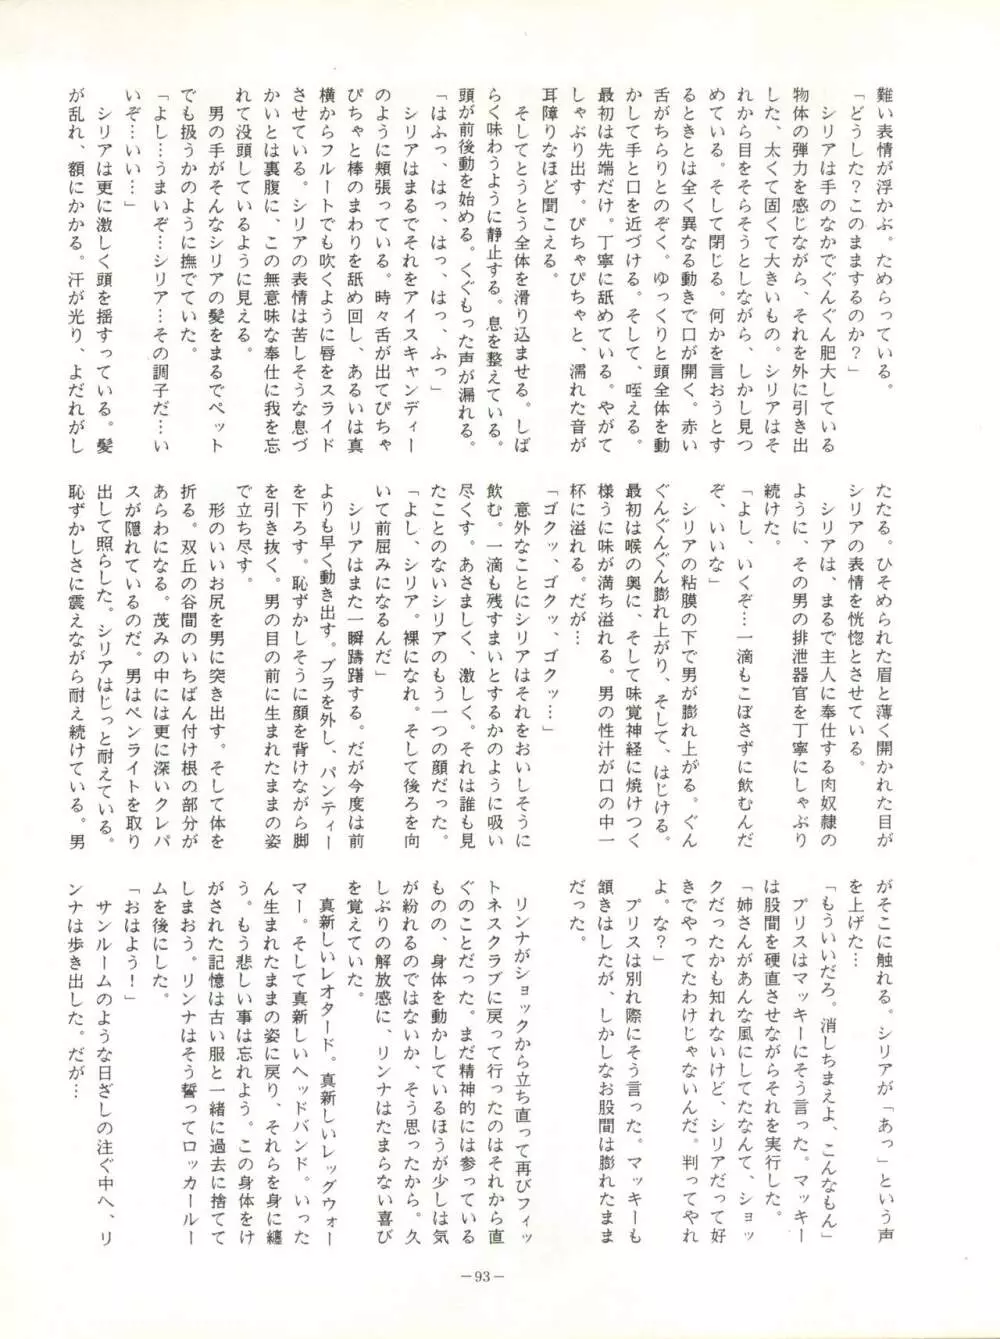 難い表情が浮かぶ。ためらっている。
「どうした？このままするのか？」
シリアは手のなかでぐんぐん肥大している
物体の弾力を感じながら、それを外に引き出
した、太くて固くて大きいもの。シリアはそ
れから目をそらそうとしながら、しかし見つ
めている。そして閉じる。何かを言おうとす
るときとは全く異なる動きで口が開く。赤い
舌がちらりとのぞく。ゆっくりと頭全体を動
かして手と口を近づける。そして、咥える。
最初は先端だけ。丁寧に舐めている。やがて
しゃぶり出す。ぴちゃぴちゃと、濡れた音が
耳障りなほど聞こえる。
そしてとうとう全体を滑り込ませる。しば
らく味わうように静止する。息を整えている。
頭が前後動を始める。くぐもった声が漏れる。
「はふっ、はっ、はっ、はっ、ふっ」
シリアはまるでそれをアイスキャンディー
のように頬張っている。時々舌が出てぴちゃ
ぴちゃと棒のまわりを舐め回し、あるいは真
横からフルートでも吹くように唇をスライド
させている。シリアの表情は苦しそうな息づ
かいとは裏腹に、この無意味な奉仕に我を忘
れて没頭しているように見える。
男の手がそんなシリアの髪をまるでペット
でも扱うかのように撫でていた。
「よし…うまいぞ…シリア…その調子だ…い
いぞ…いい…」
シリアは更に激しく頭を揺すっている。髪
が乱れ、額にかかる。汗が光り、よだれがし
たたる。ひそめられた眉と薄く開かれた目が
シリアの表情を恍惚とさせている。
シリアは、まるで主人に奉仕する肉奴隷の
ように、その男の排泄器官を丁寧にしゃぶり
続けた。
「よし、いくぞ…一滴もこぼさずに飲むんだ
ぞ、いいな」
シリアの粘膜の下で男が膨れ上がる。ぐん
ぐんぐんぐん膨れ上がり、そして、はじける。
最初は喉の奥に、そして味覚神経に焼けつく
様うに味が満ち溢れる。男の性汁が口の中一
杯に溢れる。だが…
「ゴクッ、ゴクッ、ゴクッ…」
意外なことにシリアはそれをおいしそうに
飲む。一滴も残すまいとするかのように吸い
尽くす。あさましく、激しく。それは誰も見
たことのないシリアのもう一つの顔だった。
「よし、シリア。裸になれ。そして後ろを向
いて前屈みになるんだ」
シリアはまた一瞬躊躇する。だが今度は前
よりも早く動き出す。ブラを外し、パンティー
を下ろす。恥ずかしそうに顔を背けながら脚
を引き抜く。男の目の前に生まれたままの姿
で立ち尽す。
形のいいお尻を男に突き出す。そして体を
折る。双丘の谷間のいちばん付け根の部分が
あらわになる。茂みの中には更に深いクレパ
スが隠れているのだ。男はペンライトを取り
出して照らした。シリアはじっと耐えている。
恥ずかしさに震えながら耐え続けている。男
がそこに触れる。シリアが「あっ」という声
を上げた…
「もういいだろ。消しちまえよ、こんなもん」
「姉さんがあんな風にしてたなんて、ショッ
クだったかも知れないけど、シリアだって好
きでやってたわけじゃないんだ。判ってやれ
よ。な？」
リンナがショックから立ち直って再びフィッ
トネスクラブに戻って行ったのはそれから直
ぐのことだった。まだ精神的には参っている
ものの、身体を動かしているほうが少しは気
が紛れるのではないか、そう思ったから。久
しぶりの解放感に、リンナはたまらない喜び
を覚えていた。
真新しいレオタード。真新しいレッグウォー
マー。そして真新しいヘッドバンド。いった
ん生まれたままの姿に戻り、それらを身に纏
う。もう悲しい事は忘れよう。この身体をけ
がされた記憶は古い服と一緒に過去に捨てて
しまおう。リンナはそう誓ってロッカールー
ムを後にした。
「おはよう！」
サンルームのような日ざしの注ぐ中へ、リ
ンナは歩き出した。だが…
－93－